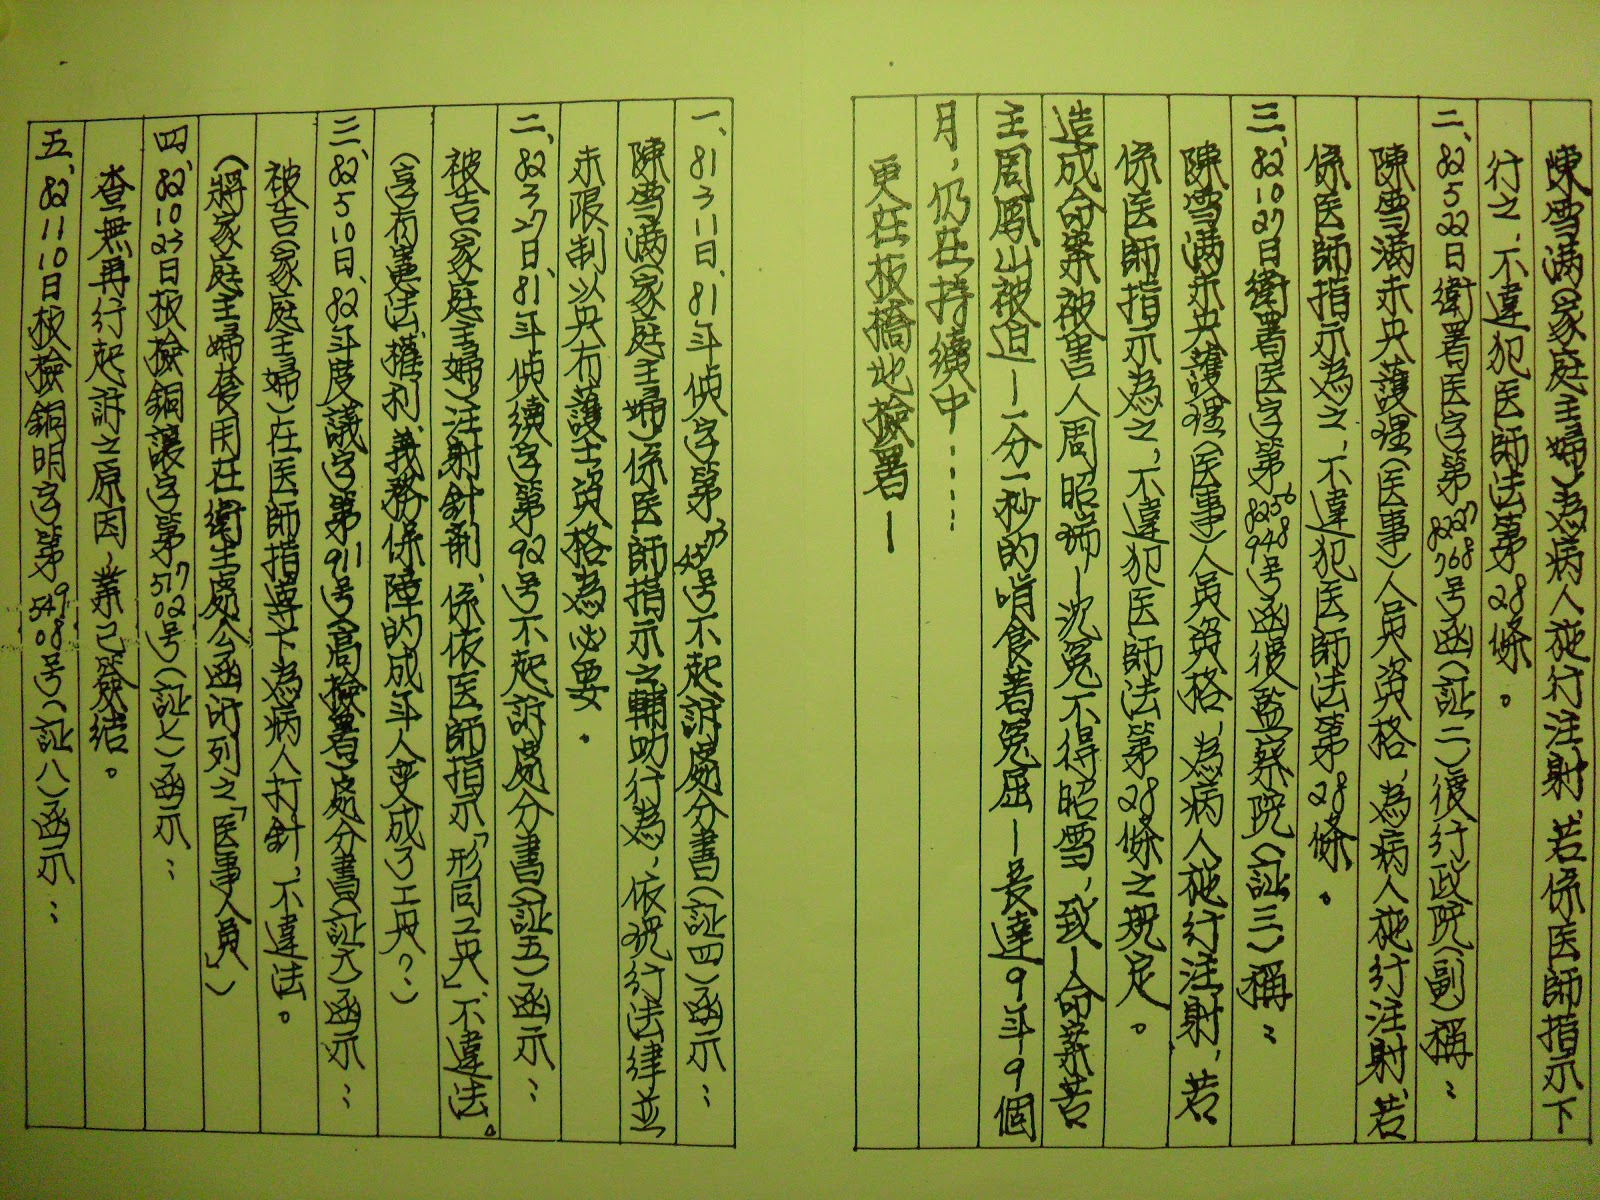 陳雪滿(家庭主婦)為病人施行注射、若係医師指示下
行之、不違犯医師法第28條。
二、82522日衛署医字第8227768号函(証二)復行政院(副)稱:
陳雪滿未具護理(医事)人員資格,為病人施行注射、若
係医師指示為之、不違犯医師法第28條。
三、821027日衛署医字第8256948号函復監察院(証三)稱:
陳雪滿未具護理(医事)人員資格,為病人施行注射,若
係医師指示為之、不違犯医師法第28條之規定。
造成命案被害人周昭瑞—沈冤不得昭雪,致—命案苦
主周鳳山被迫—一分一秒的啃食著冤屈—長達9年9個
月,仍在持續中……
更在板橋地檢署—
一、81311日、81年偵字第4573号不起訴處分書(証四)函示:
陳雪滿(家庭主婦)係医師指示之輔助行為,依現行法律並
未限制以具有護士資格為必要.
二、82327日、81年偵續字第92号不起訴處分書(証五)函示:
被告(家庭主婦)注射針劑、係依医師指示「形同工具」、不違法。
(享有憲法、權利、義務保障的成年人變成了工具?)
三、82510日、82年度議字第911号(高檢署)處分書(証六)函示:
被告(家庭主婦)在医師指導下為病人打針,不違法。
(將家庭主婦套用在衛生處公函所列之「医事人員」)
四、821023日板檢銅讓字第51702号(証七)函示:
查無再行起訴之原因,業已簽結。
五、821110日板檢銅明字第54908号(証八)函示: